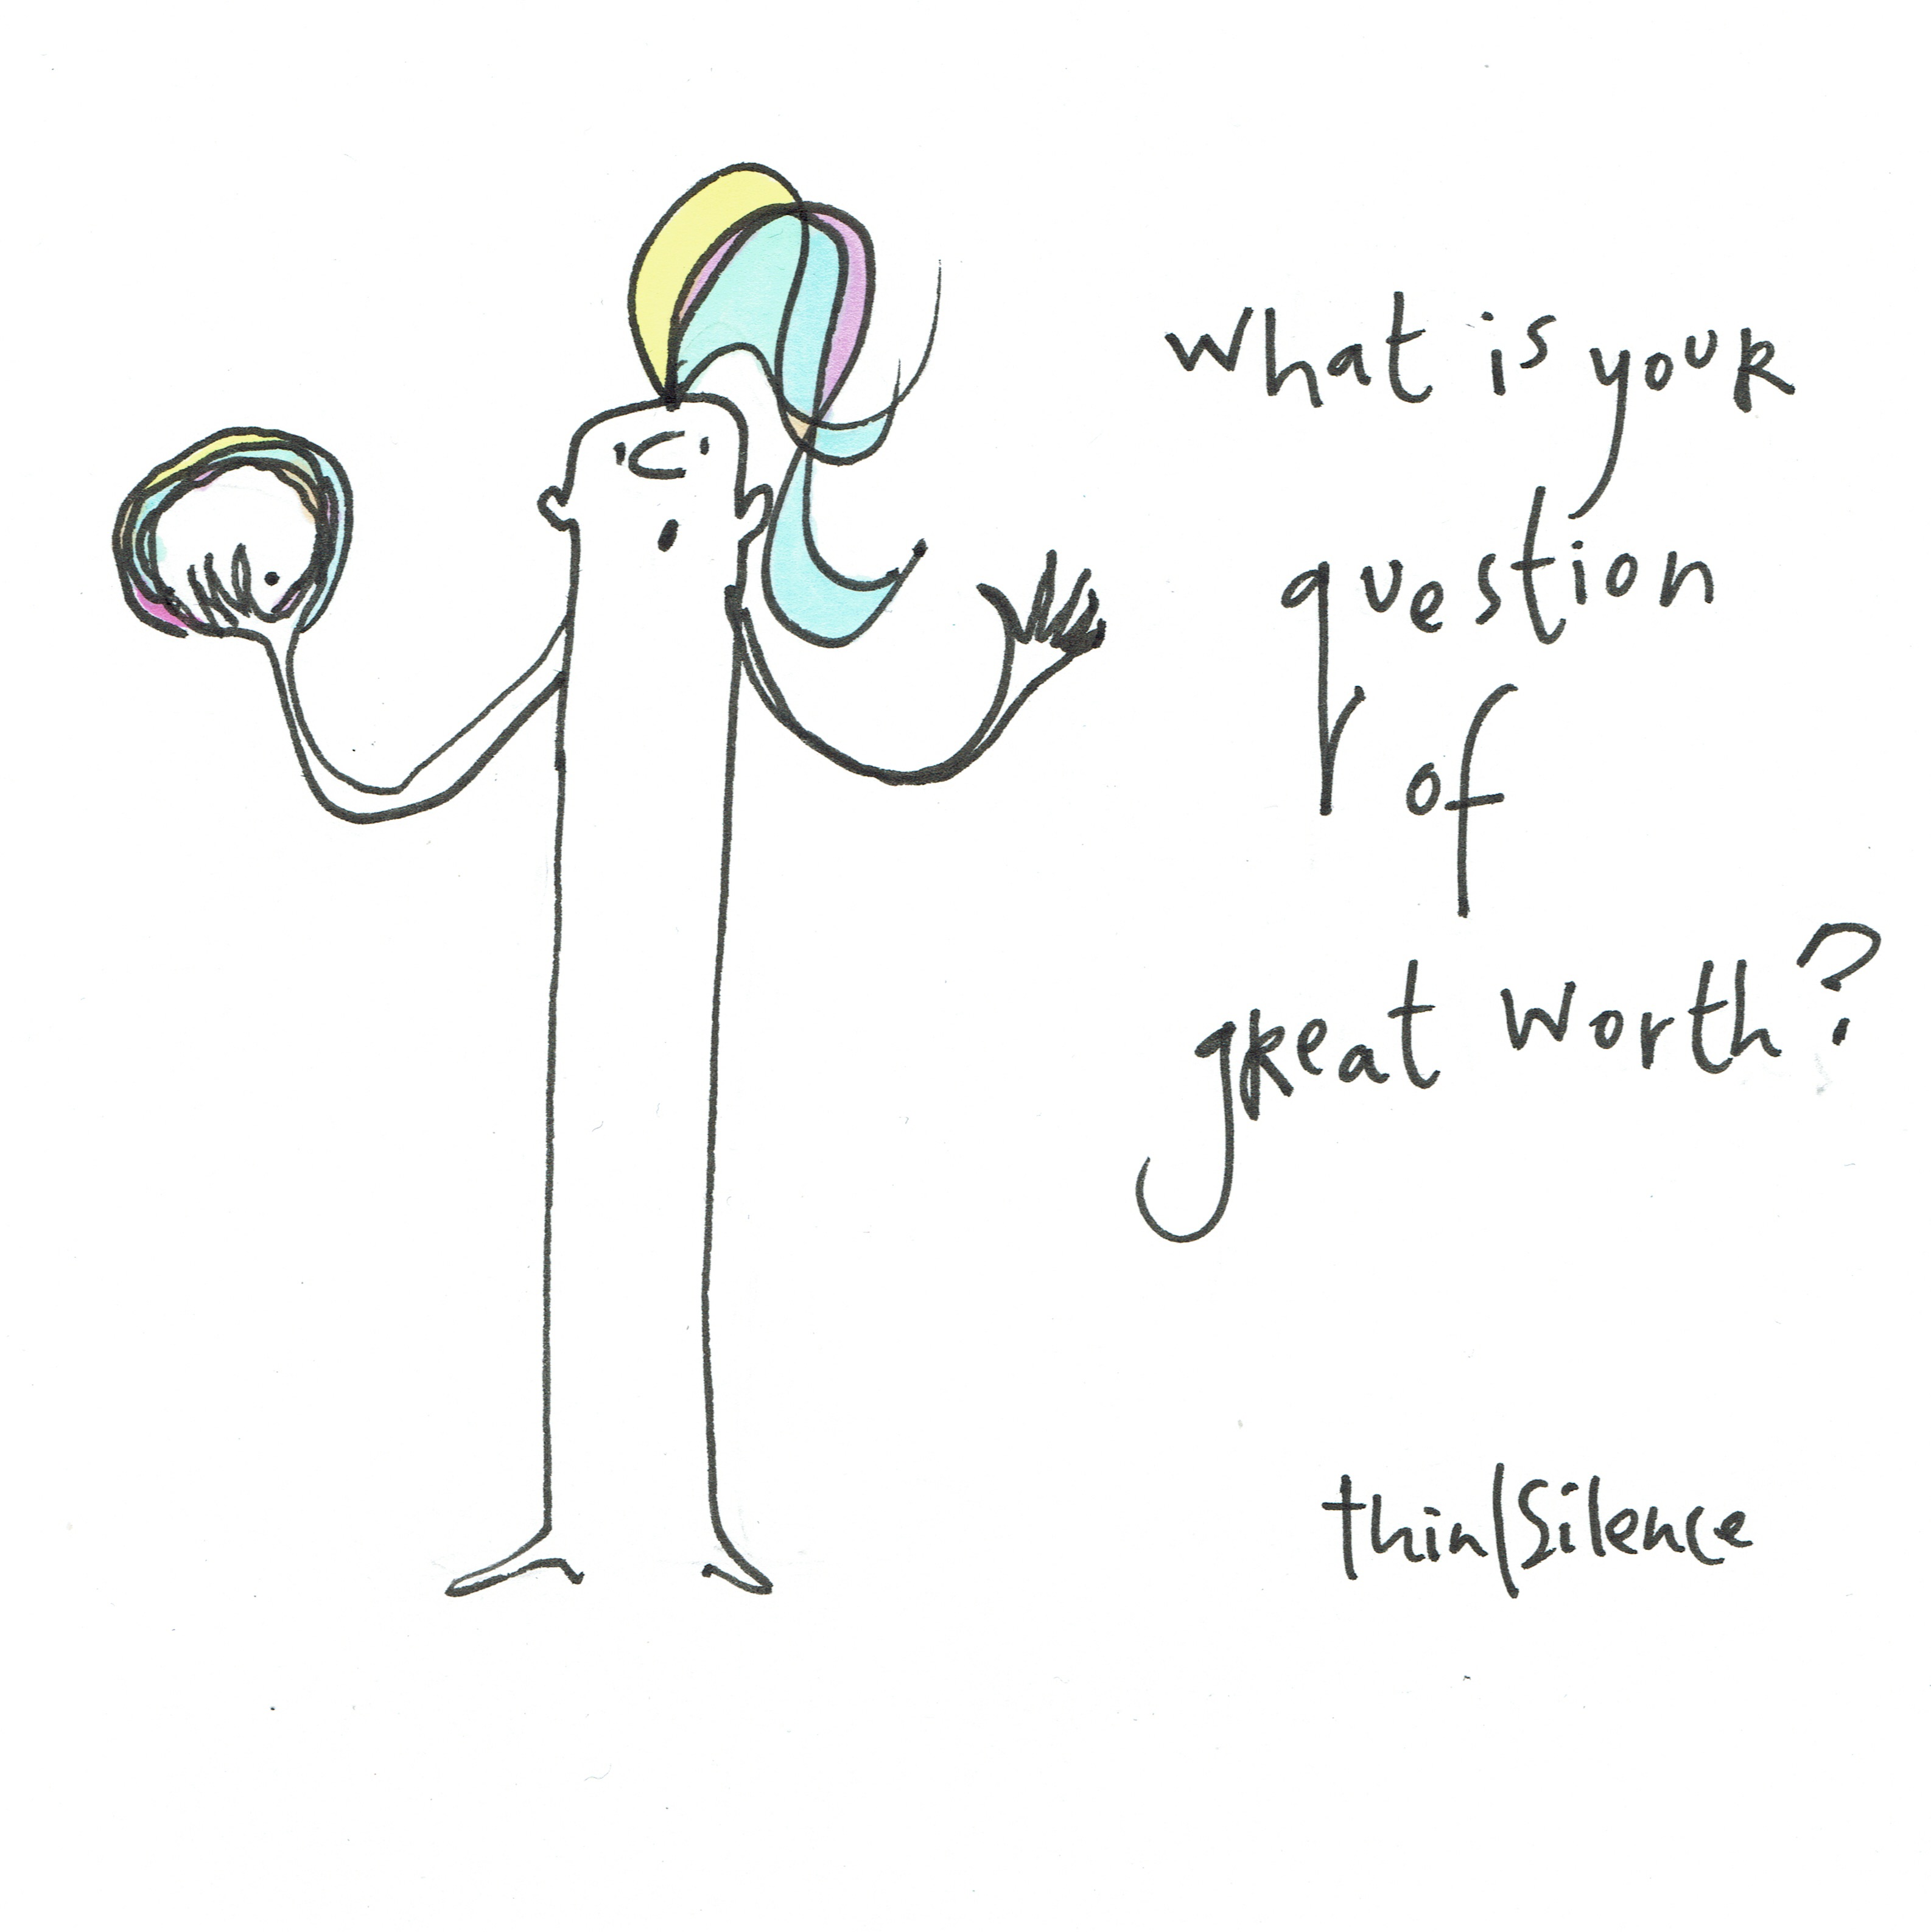 What is your
question
of
great worth?
thin|Silence